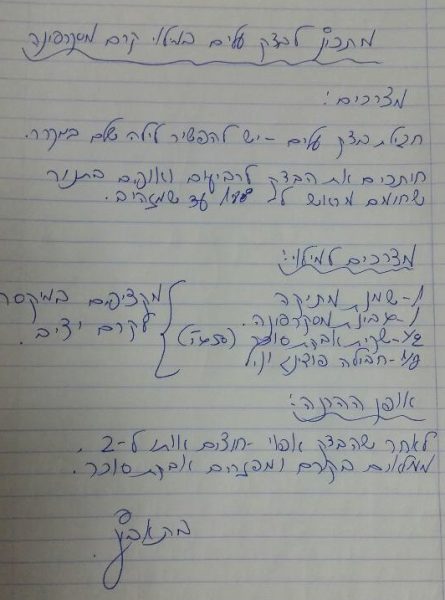 מתכון לבצק עלים במילוי קרם מסקרפונה
מצרכים:
חבילת בצק עלים - יש להפשיר לילה שלם במקרר.
חותכים את הבצק לרבועים ואופים בתנור
שחומם מראש ל 180° עד שמזהיב.
מצרכים למילוי:
1- שמנת מתיקה
1 גבינת מסקרפונה.
1/2- שקית אבקת סוכר (50 גר')
1/3- חבילה פודינג וניל
} מקציפים במיקסר
לקרם יציב.
אופן ההכנה:
לאחר שהבצק אפוי - חוצים אותו ל-2.
ממלאים בקרם ומפזרים אבקת סוכר.
בתאבון